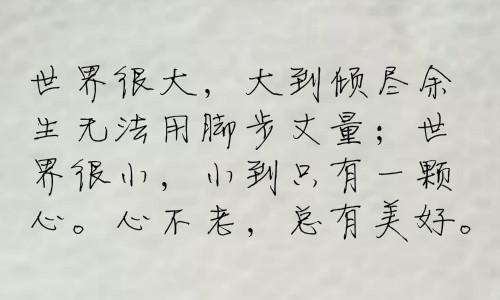 世界很大，大到倾尽余
生无法用脚步丈量；世
界很小，小到只有一颗
心。心不老，总有美好。